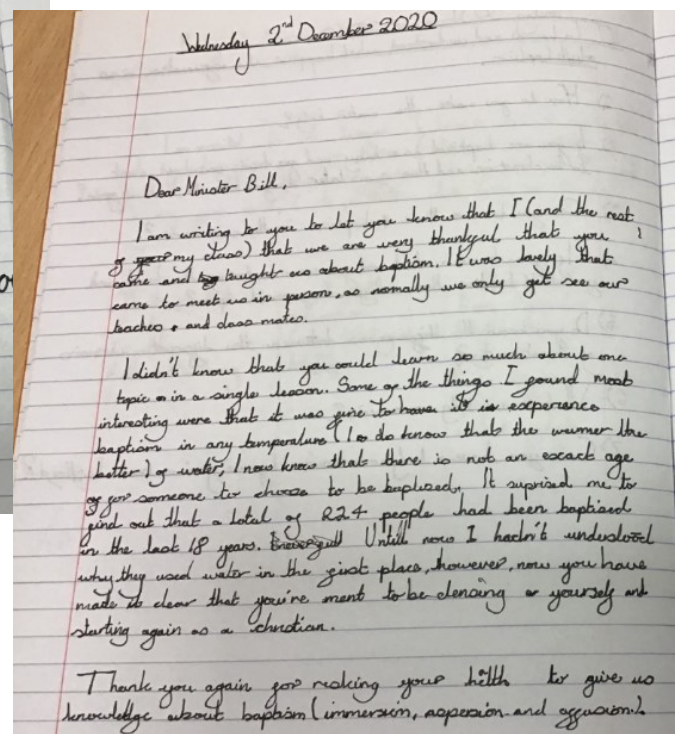 Wednesday 2nd December 2020
Dear Minister Bill,
I am writing to you to let you know that I (and the rest
of my class) that we are very thankful that you
came and taught us about baptism. It was lovely that
came to meet us in person, as normally we only get see our
teaches and class mates.
I didn't know that you could learn so much about one
topic in a single lesson. Some of the things I found most
interesting were that it was fine to have experience
baptism in any temperature (I do know that the wumer the
better) of water, I now know that there is not an escact age
for someone to choose to be baptised, It suprised me to
find out that a total of 224 people had been baptised
in the last 18 years. Untill now I hadn't understood
why they used water in the first place, however, now you have
made it clear that you're ment to be clensing yourself and
starting again as a christian.
Thank you again for risking your hilth to give us
knowledge about baptism (immersion, aspersion and affusion).